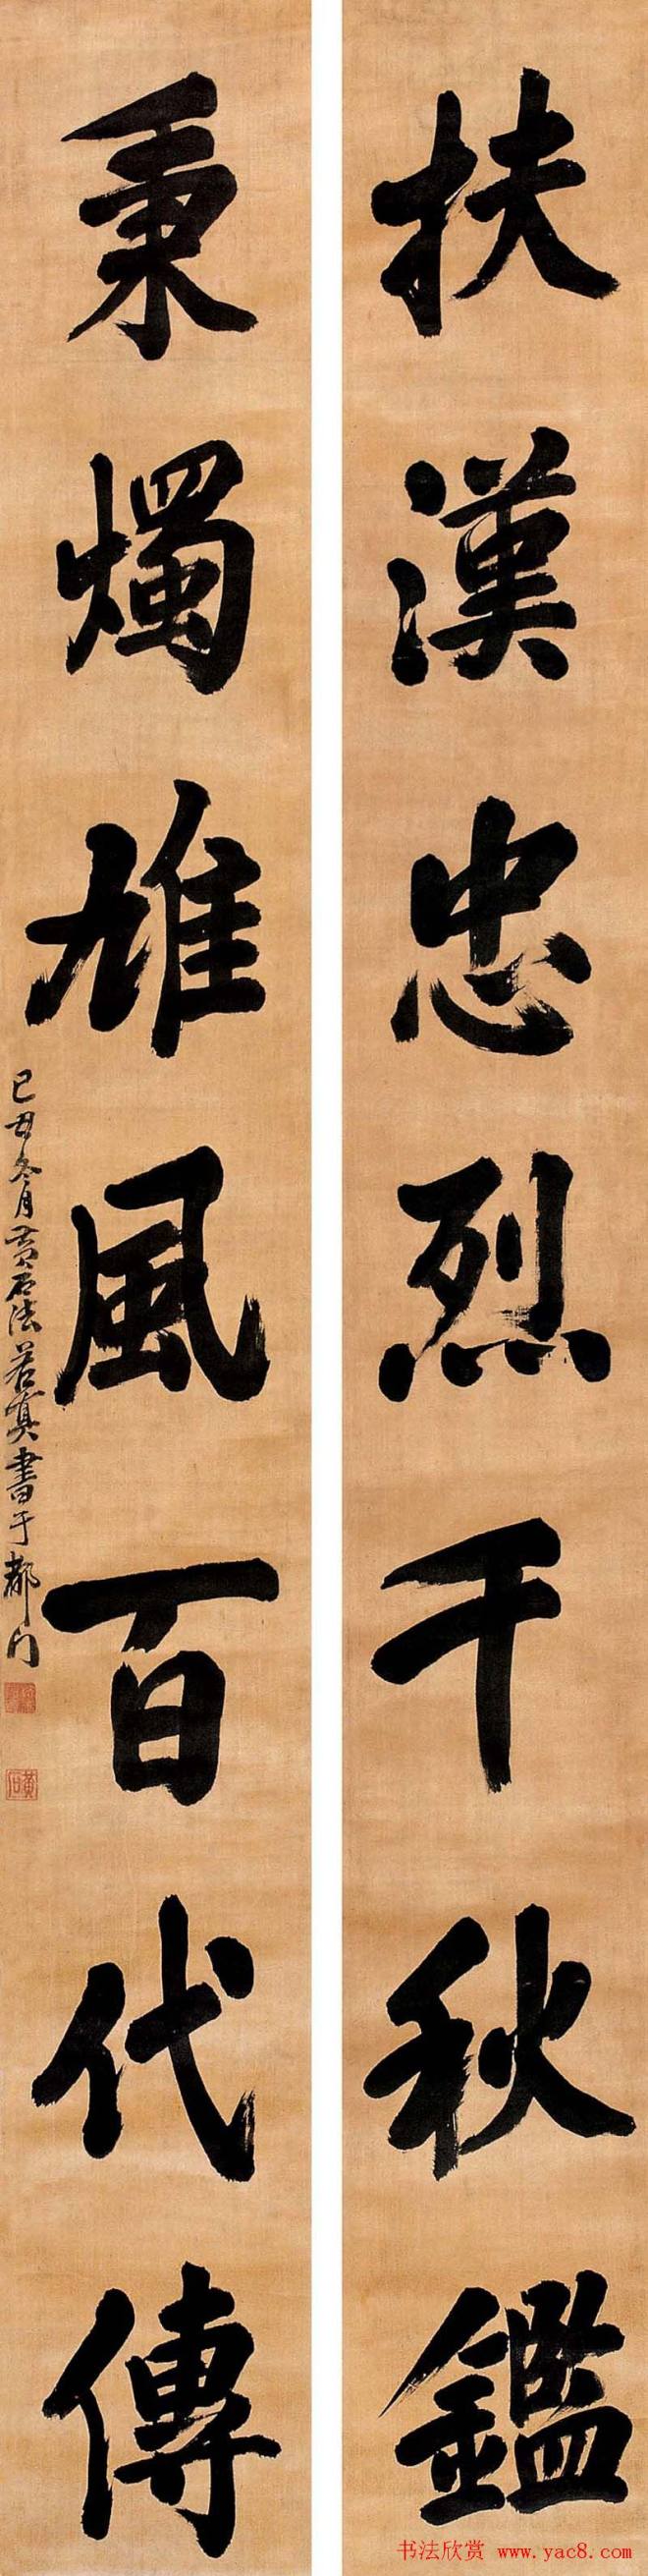 扶漢忠烈千秋鑑
秉燭雄風百代傳
己丑冬月黄石法若真書于都门
黃石
书法欣赏 www.yac8.com